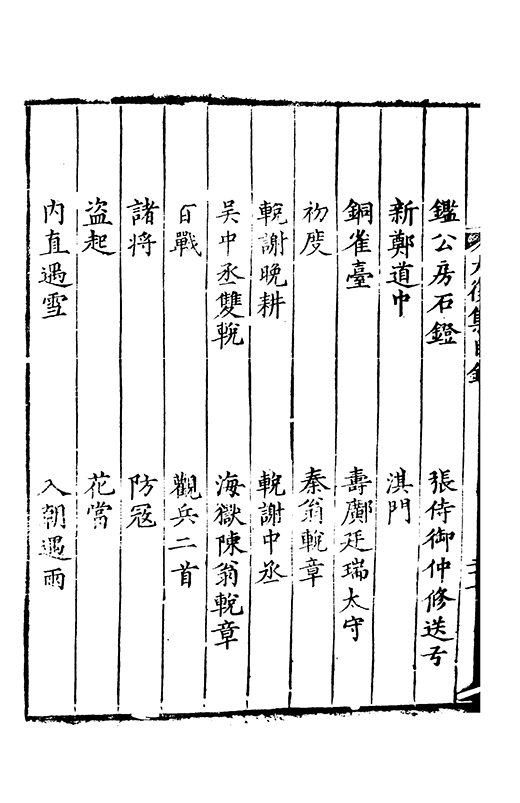 大復集目錄
鑑公房石鐙　張侍御仲修送
新鄭道中　淇門
銅雀臺　壽鄺廷瑞太守
初度　秦翁輓章
輓謝晚耕　輓謝中丞
吳中丞雙輓　海嶽陳翁輓章
百戰　觀兵二首
諸將　防寇
盜起　花當
內直遇雪　入朝遇雨